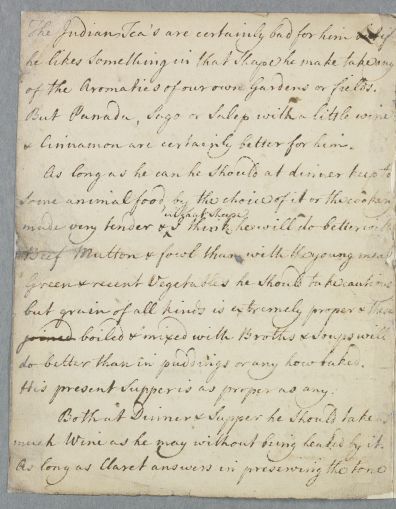 The Indian Tea's are certainly bad for him & if
he likes something in that Shape he make take any
of the Aromatics of our own Gardens or fields.
But Panada, Sago or Salep with a little wine
& Cinnamon are certainly better for him.
As long as he can he should at dinner keep to
some animal food by the choice of it or the cookery
in that Shape
made very tender & I think he will do better with
Beef Mutton & fowl than with the young meats
Green & recent Vegetables he should take cautiously
but grain of all kinds is extremely proper & these
joined boiled & mixed with Broths & Soups will
do better than in puddings or any how baked.
His present Supper is as proper as any.
Both at Dinner & Supper he should take as
much Wine as he may without being heated by it.
As long as Claret answers in preserving the tone